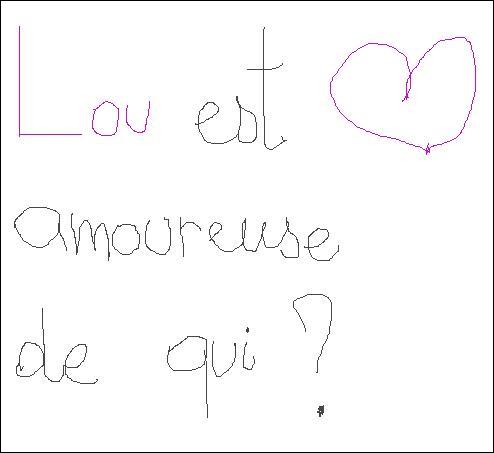 Lou est
amoureuse
de qui ?